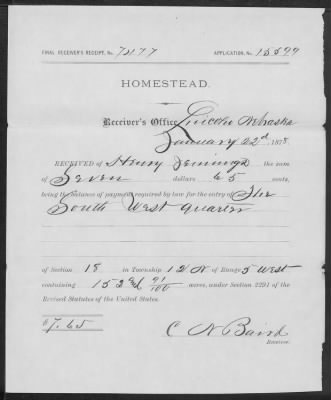 FINAL RECEIVER'S RECEIPT, No. 7477 APPLICATION, No. 15599
HOMESTEAD.
Receiver's Office, Lincoln Nebraska
January 22d, 1878
RECEIVED of Henry Jennings the sum
of Seven dollars 65 cents,
being the balance of payment required by law for the entry of The
South West quarter
of Section 18 in Township 12 N of Range 5 West
containing 152 91/100 acres, under Section 2291 of the
Revised Statutes of the United States.
$7.65
C N Baird
Receiver.